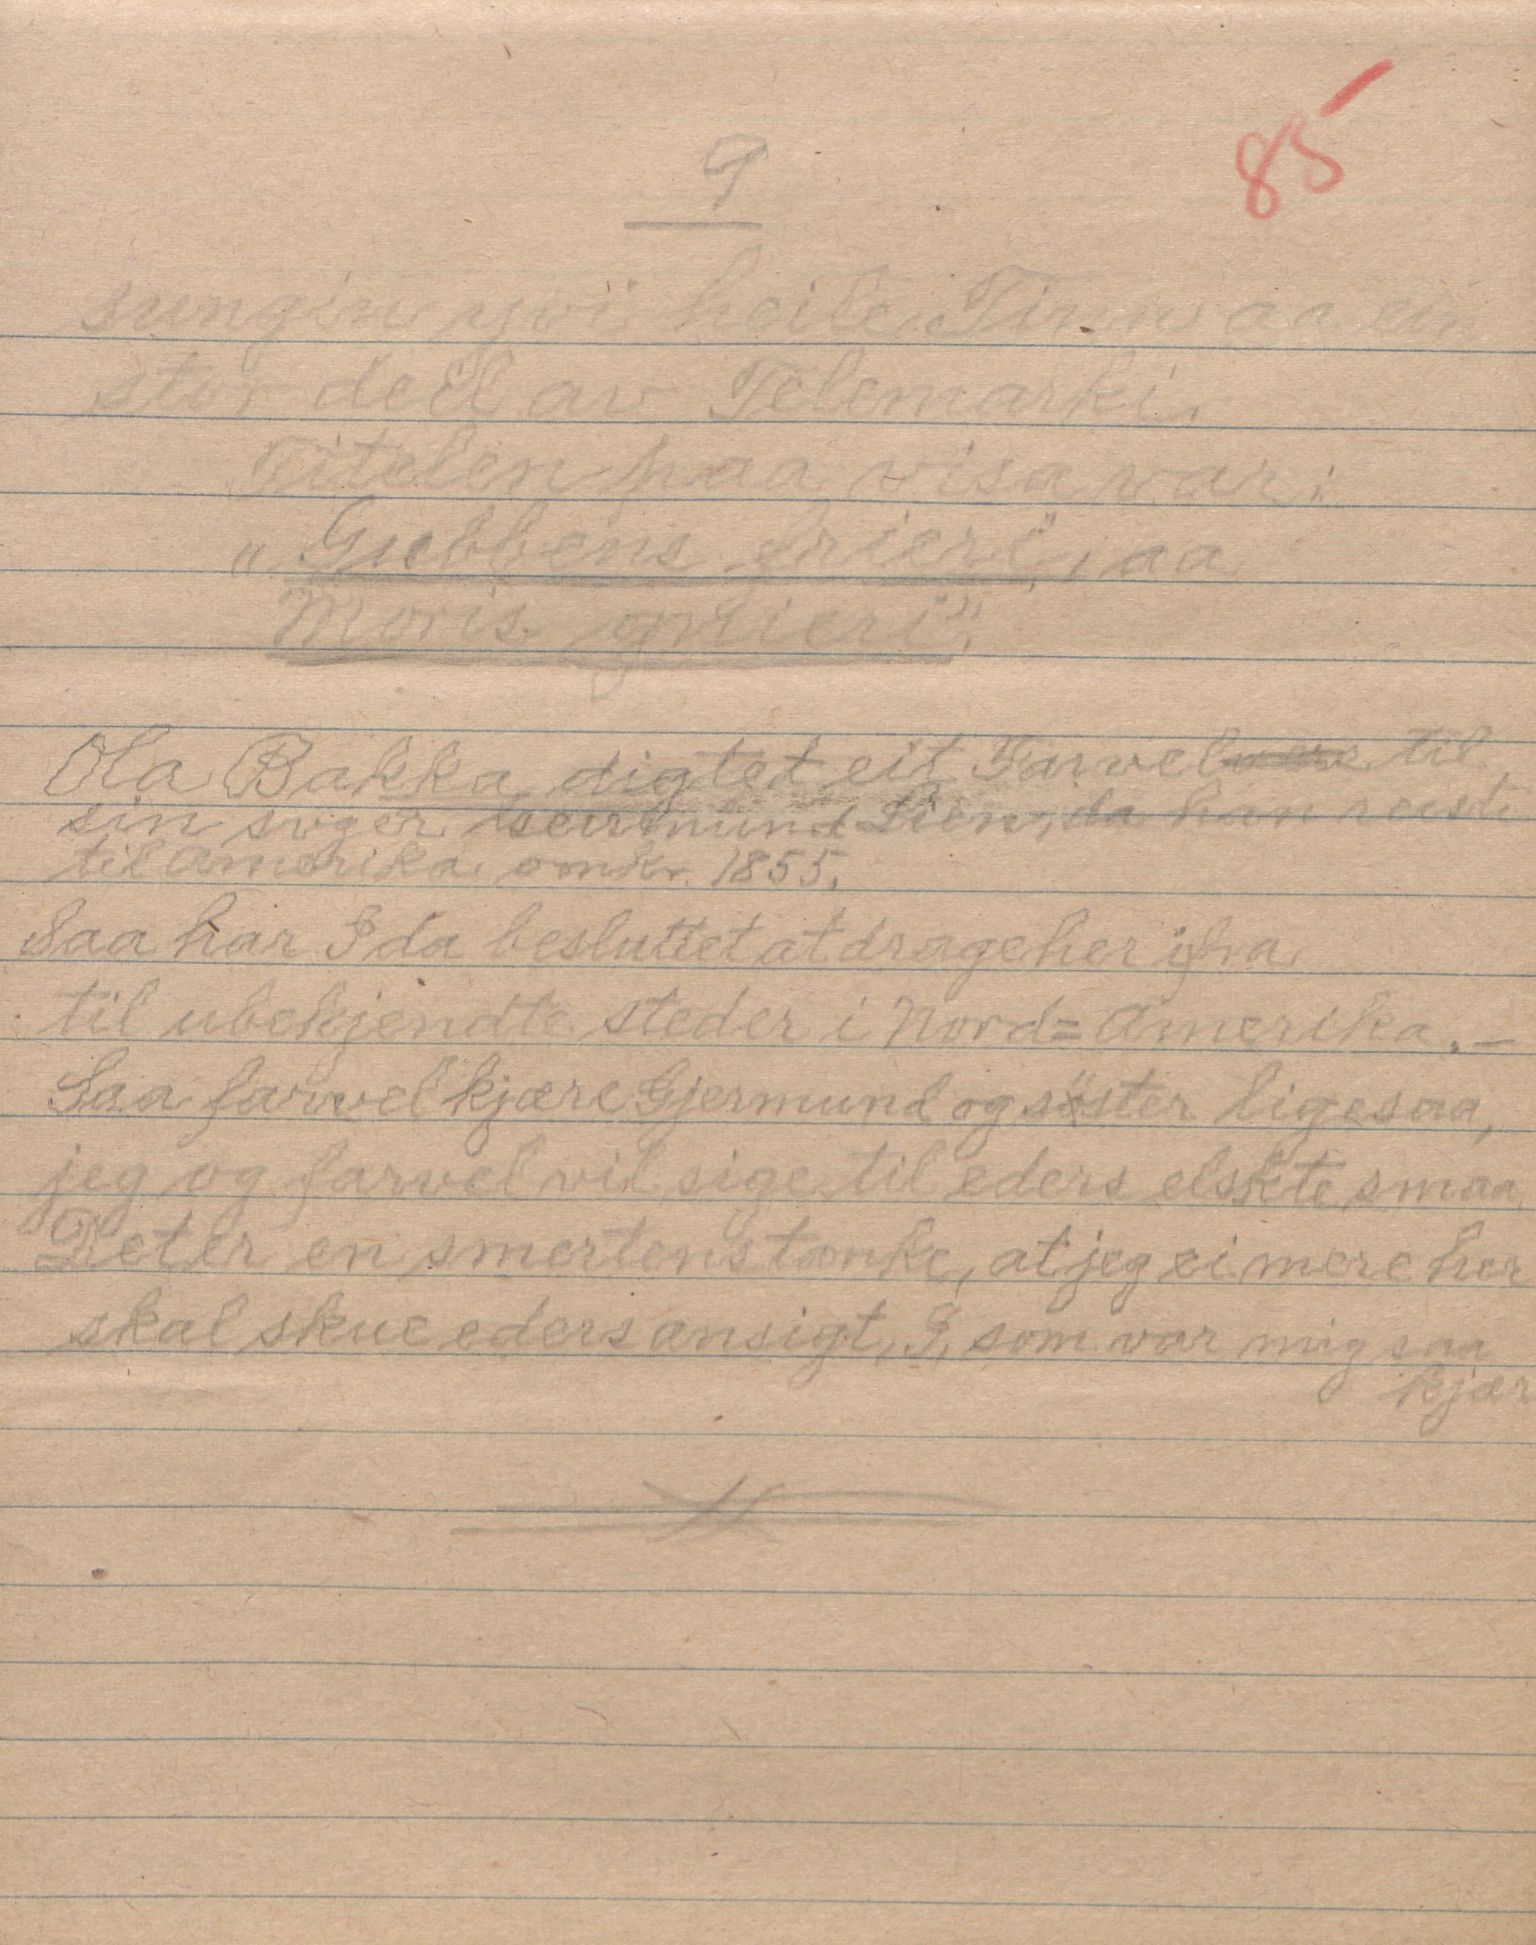 85
9
sungin yvi heile Tinn aa ein
stor deil av Telemarki.
Titelen paa visa var:
"Gubbens frieri, aa
Moris gnieri".
Ola Bakka digtet eit Farvel til
sin svoger Lien, da han reiste
til Amerika omkr. 1855.
Saa har I da besluttet at drage her ifra
til ubekjendte steder i Nord=Amerika. —
Saa farvel kjære Gjermund og söster ligesaa,
jeg og farvel vil sige til eders elskte smaa
Det er en smertens tanke, at jeg ei mere her
skal skue eders ansigt, I, som var mig saa
kjær